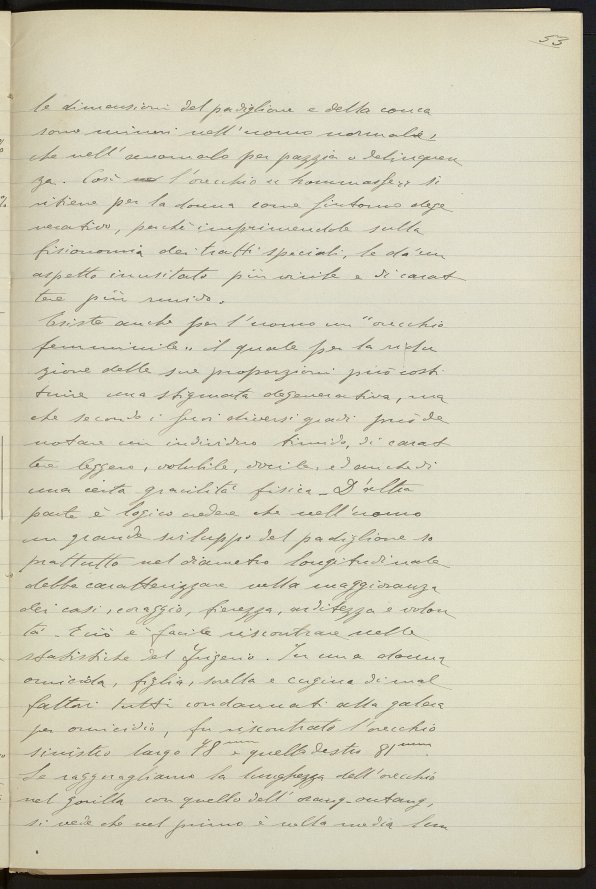 53
le dimensioni del padiglione e della conca
sono minori nell'uomo normale,
che nell'anomalo per pazzia o delinquen
za. Così l'orecchio "hommasse" si
ritiene per la donna come sintomo dege
nerativo, perchè imprimendole sulla
fisionomia dei tratti speciali, le dà un
aspetto inusitato più virile e di carat
tere più ruvido.
Esiste anche per l'uomo un "orecchio
femminile" il quale per la ridu
zione delle sue proporzioni può costi
tuire una stigmata degenerativa, ma
che secondo i suoi diversi gradi può de
notare un individuo timido, di carat
tere leggero, volubile, docile, ed anche di
una certa gracilità fisica - D'altra
parte è logico credere che nell'uomo
un grande sviluppo del padiglione so
prattutto nel diametro longitudinale
debba caratterizzare nella maggioranza
dei casi, coraggio, fierezza, arditezza e volon
tà - E ciò è facile riscontrare nelle
statistiche del Frigerio. In una donna
omicida, figlia, sorella e cugina di mal
fattori tutti condannati alla galera
per omicidio, fu riscontrato l'orecchio
sinistro largo 78 mm e quello destro 81 mm
Se ragguagliamo la lunghezza dell'orecchio
nel gorilla con quello dell'orang-outang,
si vede che nel primo è nella media lun